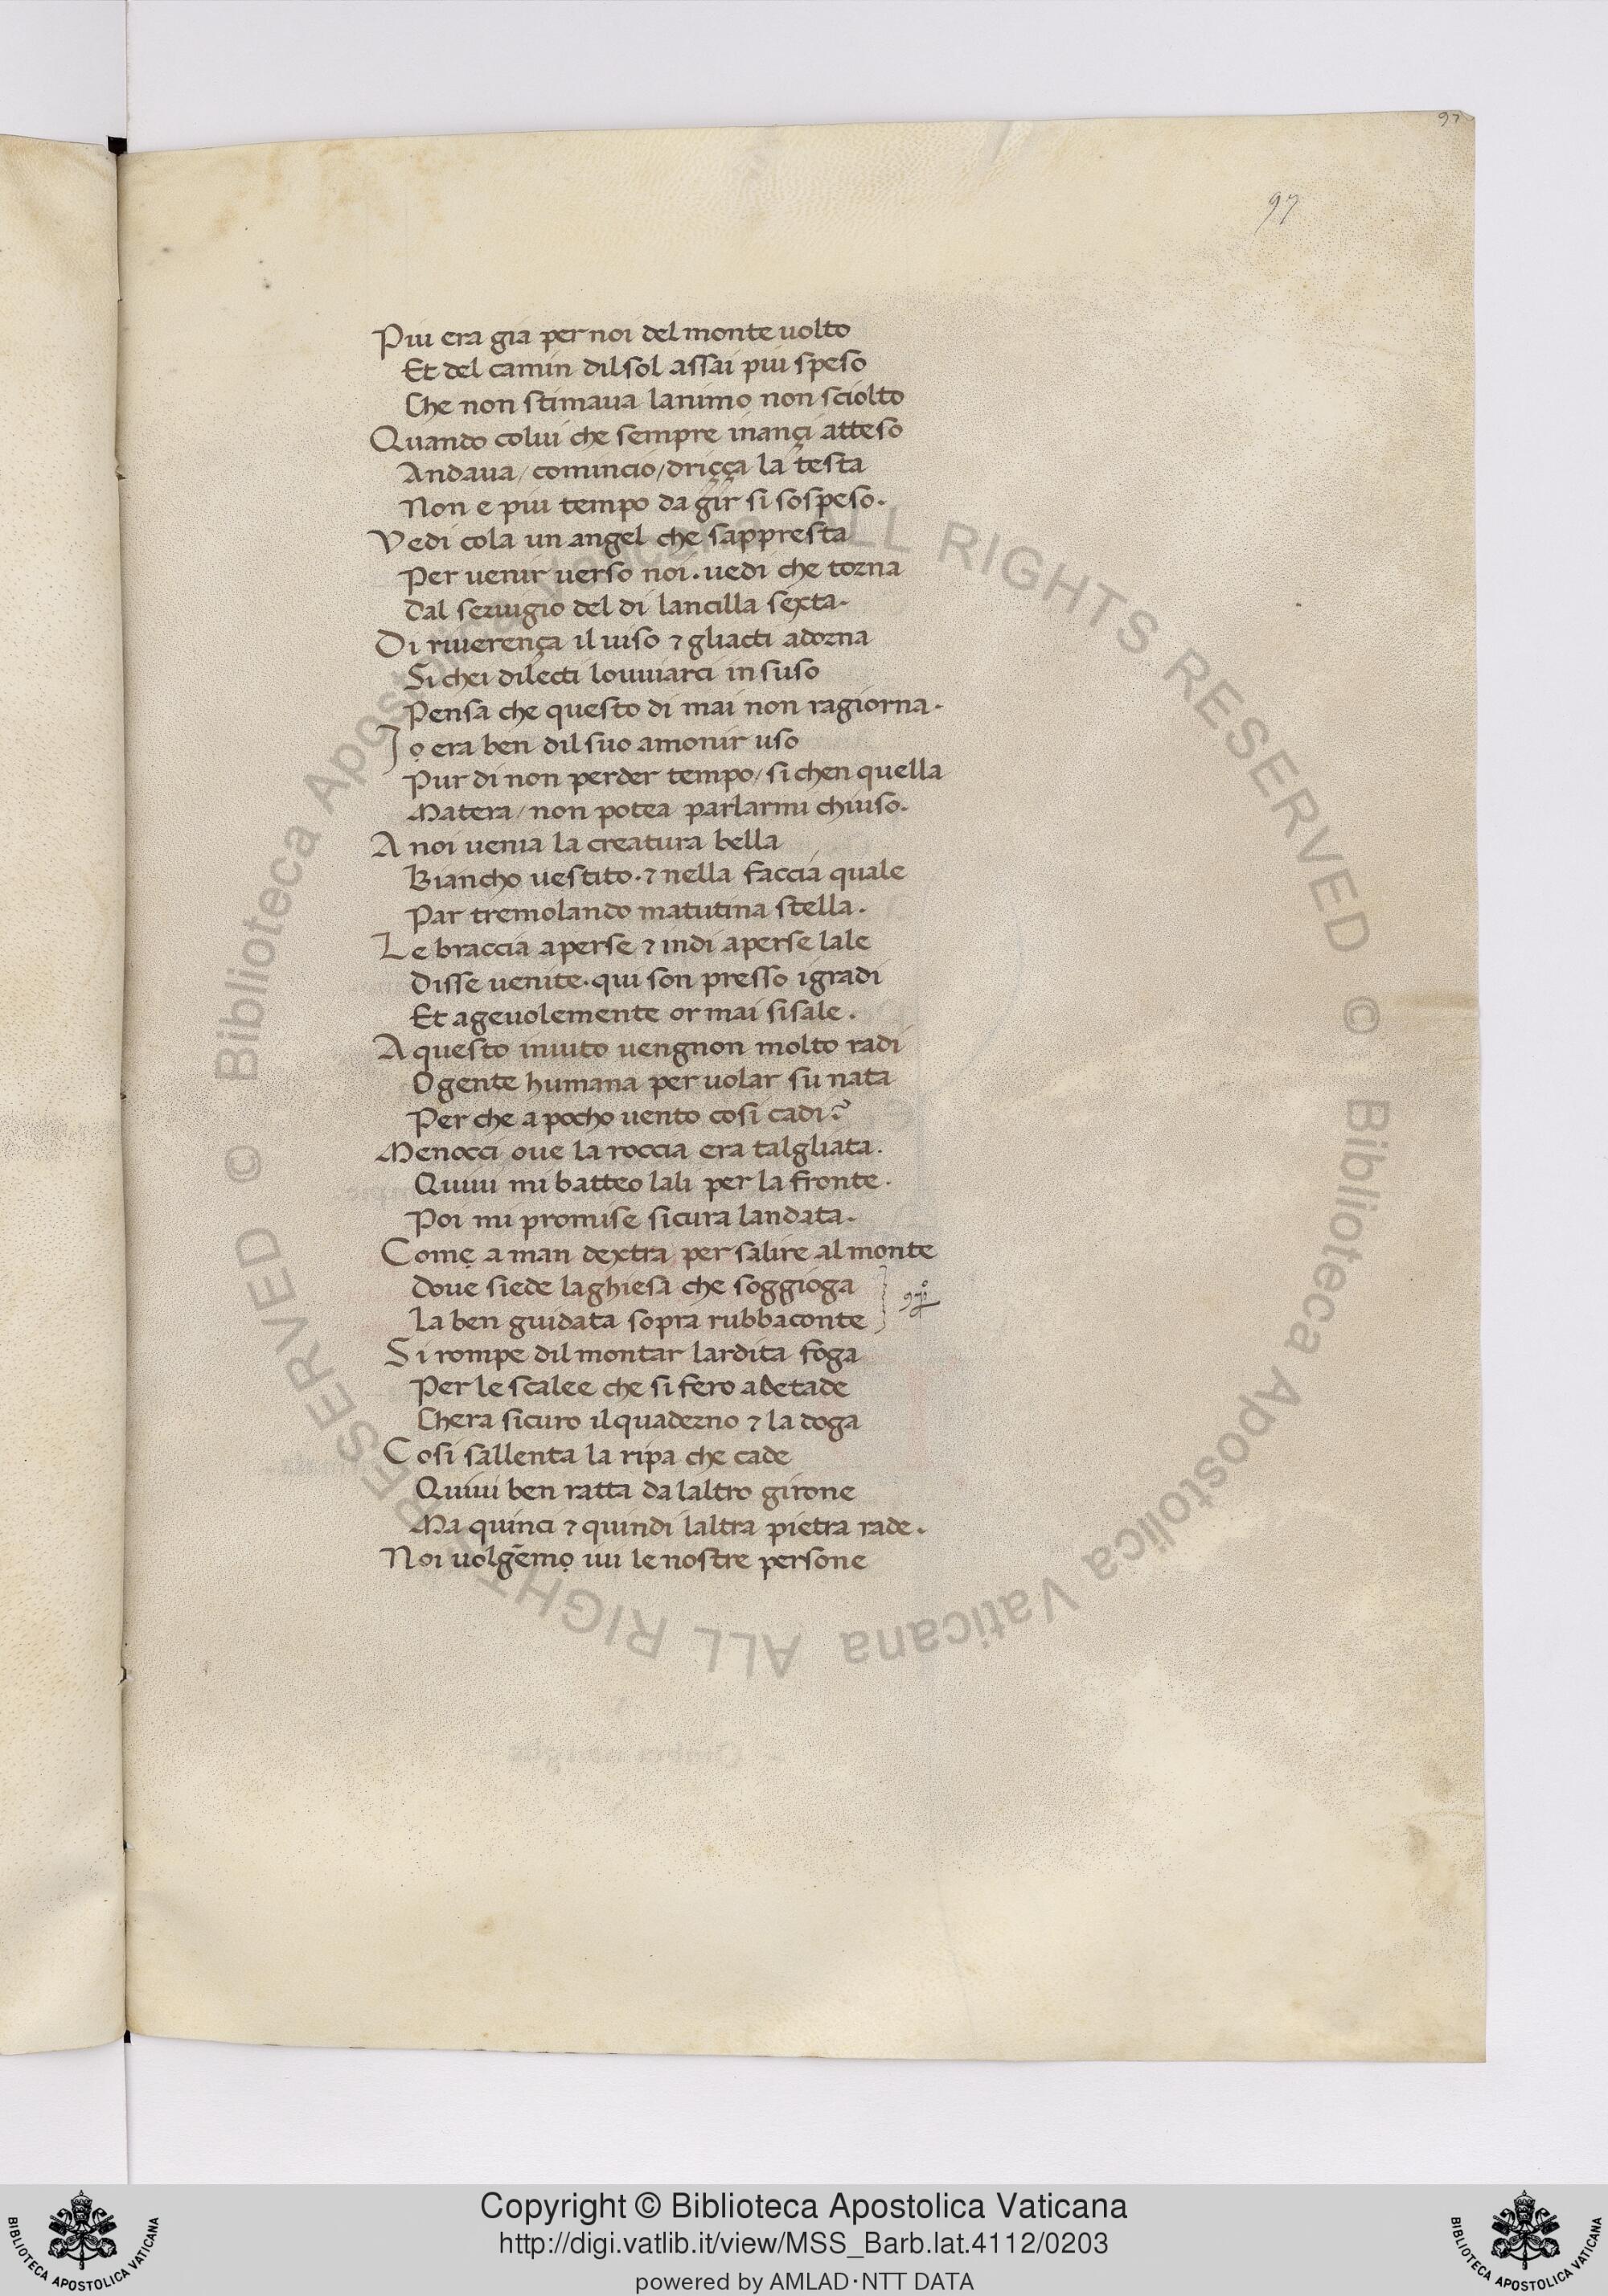 97
97
Piu era gia per noi del monte uolto
Et del camin dil sol assai piu speso
Che non stimaua lanimo non sciolto
Quando colui che sempre inançi atteso
Andaua / comincio / driçça la testa
Non e piu tempo da gir si sospeso.
Vedi cola un angel che sappresta
Per uenir uerso noi. uedi che torna
Dal seruigio del di lancilla sexta.
Di riuerença il uiso ⁊ gliacti adorna
Si chei dilecti louuiarci in suso
Pensa che questo di mai non ragiorna.
Jo era ben dil suo amonir uso
Pur di non perder tempo / si chen quella
Matera / non potea parlarmi chiuso.
A noi uenia la creatura bella
Biancho uestito. ⁊ nella faccia quale
Par tremolando matutina stella.
Le braccia aperse ⁊ indi aperse lale
Disse uenite. qui son presso i gradi
Et ageuolemente or mai si sale.
A questo inuito uengnon molto radi
O gente humana per uolar su nata
Per che a pocho uento cosi cadi?
Menocci oue la roccia era talgliata.
Quiui mi batteo lali per la fronte.
Poi mi promise sicura landata.
Come a man dextra per salire al monte
Doue siede la ghiesa che soggioga
La ben guidata sopra rubbaconte
Si rompe dil montar lardita foga
Per le scalee che si fero adetade
Chera sicuro il quaderno ⁊ la doga
Cosi sallenta la ripa che cade
Quiui ben ratta da laltro girone
Ma quinci ⁊ quindi laltra pietra rade.
Noi uolgemo iui le nostre persone
© Biblioteca Apostolica Vaticana ALL RIGHTS RESERVED © Biblioteca Apostolica Vaticana ALL RIGHTS RESERVED
Copyright © Biblioteca Apostolica Vaticana
http://digi.vatlib.it/view/MSS_Barb.lat.4112/0203
powered by AMLAD·NTT DATA
BIBLIOTECA APOSTOLICA VATICANA
BIBLIOTECA APOSTOLICA VATICANA